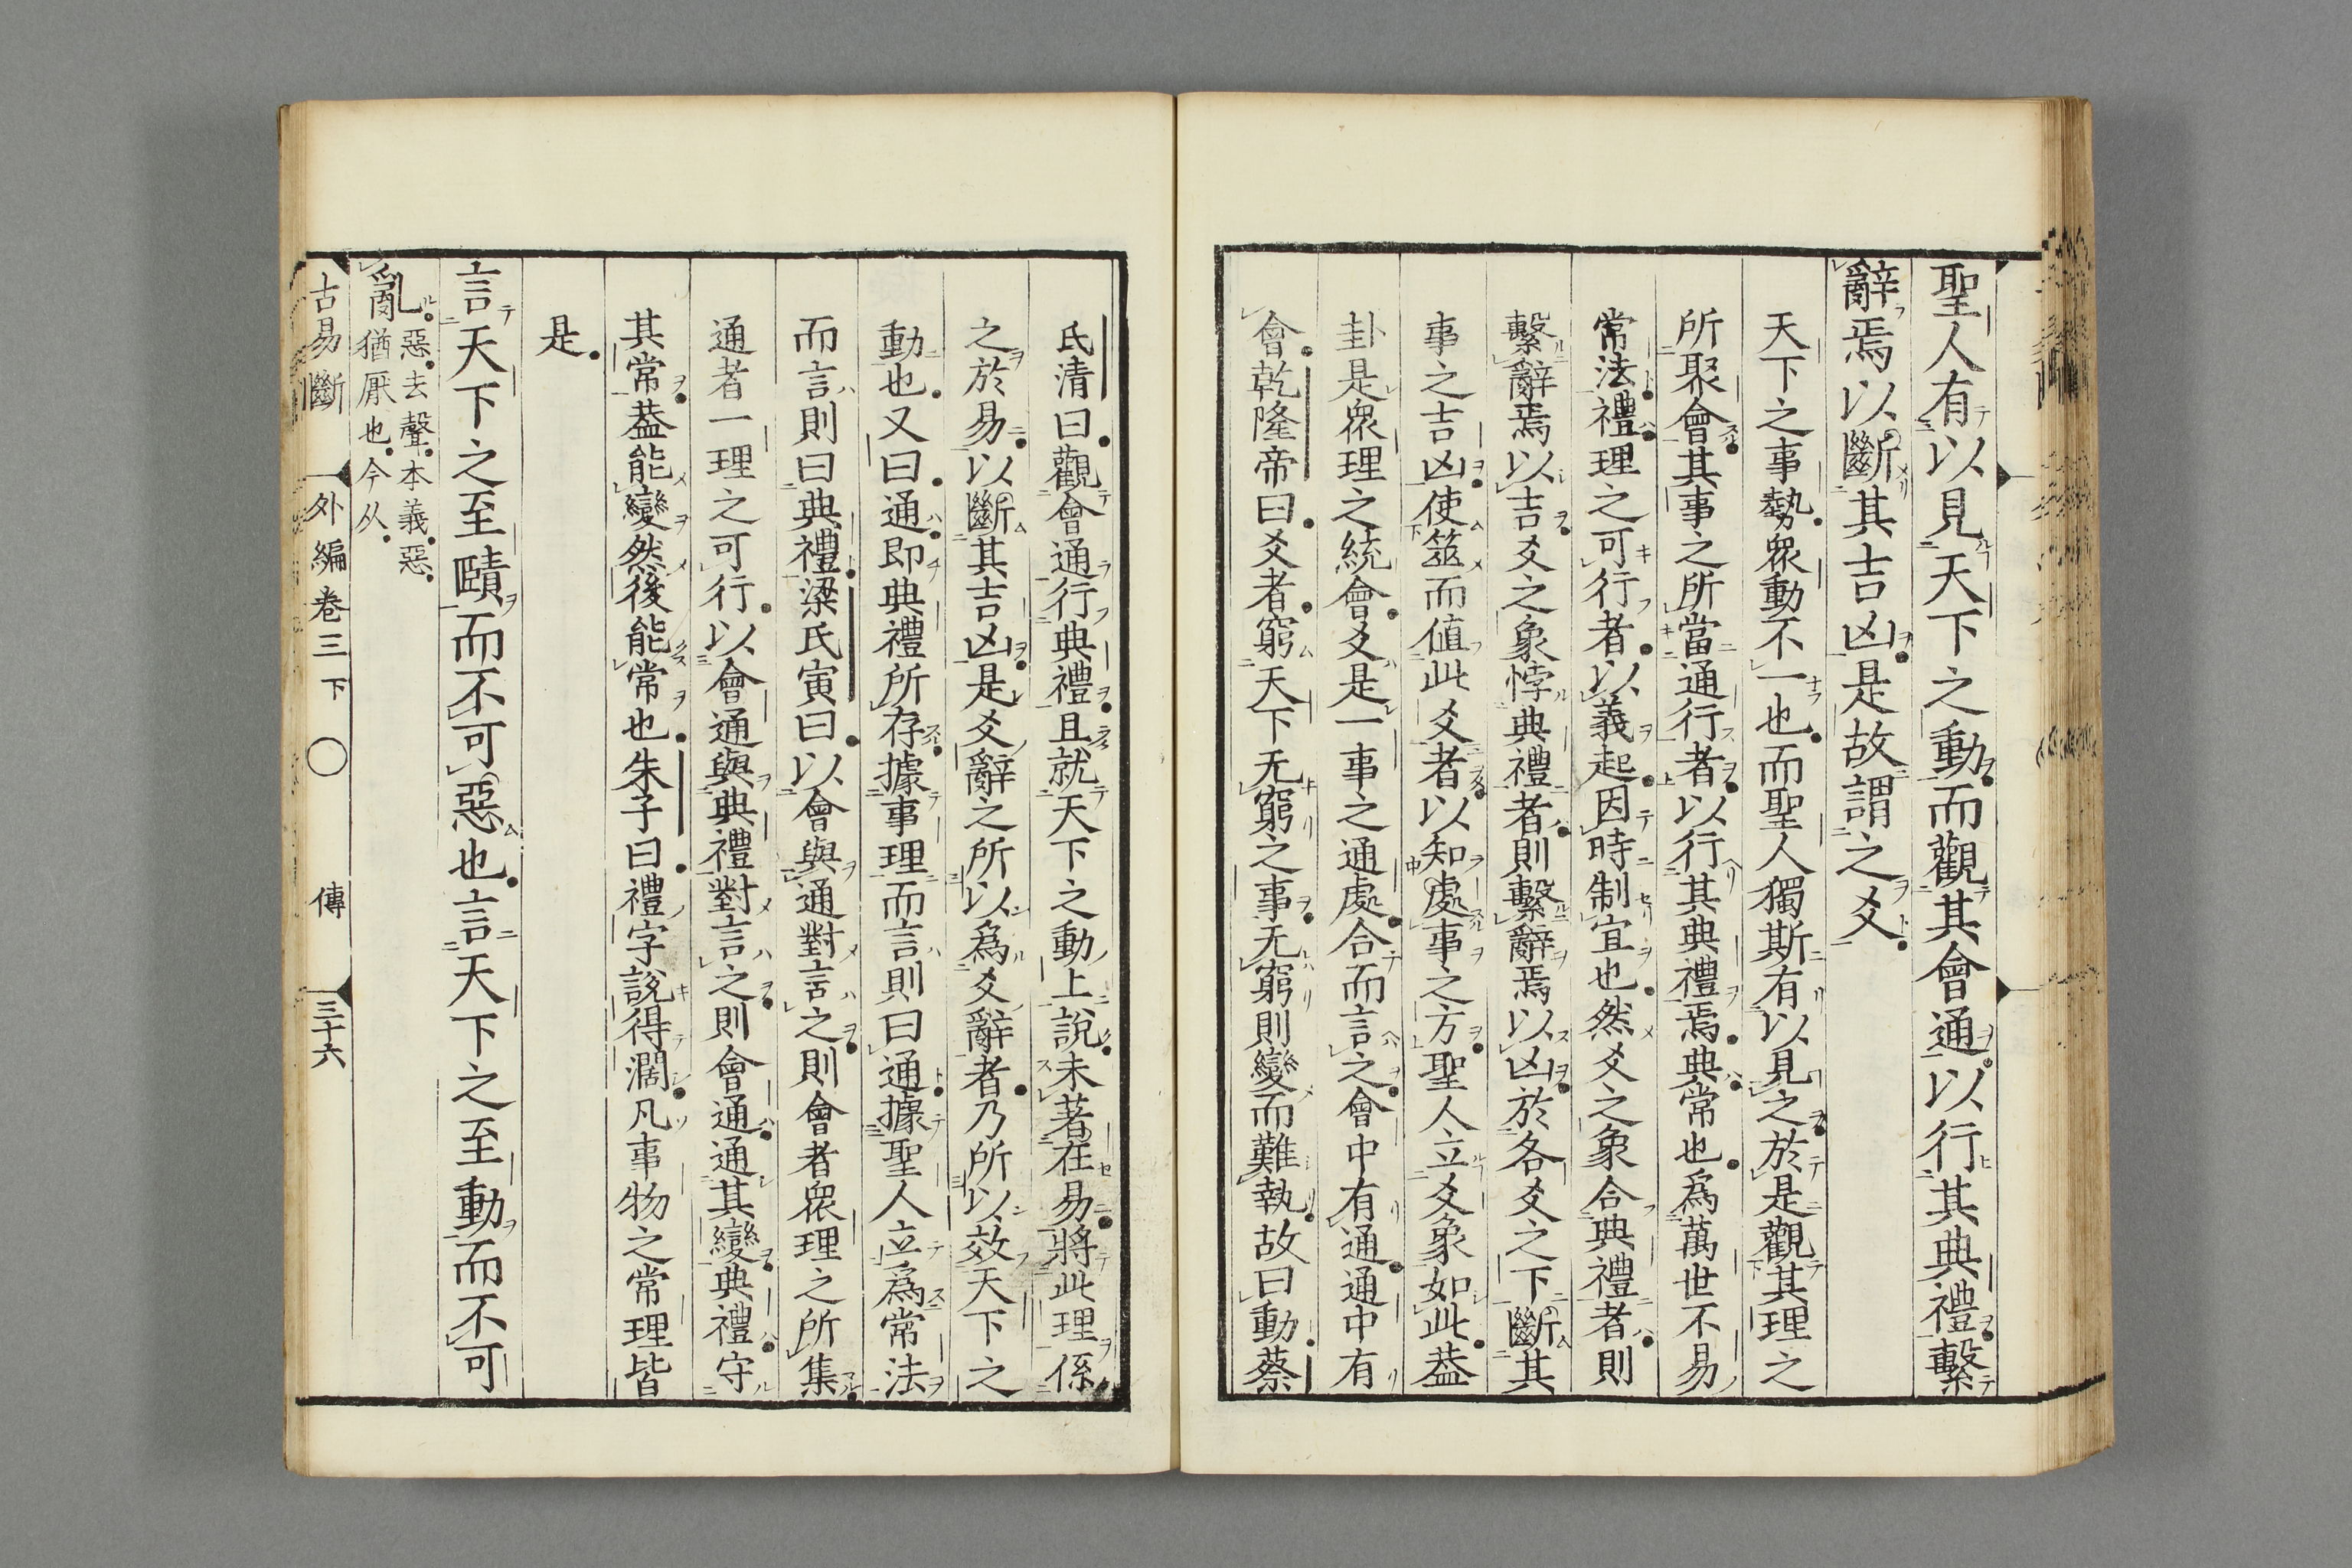 聖人有以見天下之動而觀其會通以行其典禮繫
辭焉以斷其吉凶是故謂之爻
天下之事勢衆動不一也而聖人獨斯有以見之於是觀其理之
所聚會其事之所當通行者以行其典禮焉典常也爲萬世不易
常法禮理之可行者以義起因時制宜也然爻之象合典禮者則
繫辭焉以吉爻之象悖典禮者則繫辭焉以凶於各爻之下斷其
事之吉凶使筮而値此爻者以知處事之方聖人立爻象如此葢
卦是衆理之統會爻是一事之通處合而言之會中有通通中有
會乾隆帝曰爻者窮天下无窮之事无窮則變而難執故曰動蔡
氏清曰觀會通行典禮且就天下之動上說未著在易將此理係
之於易以斷其吉凶是爻辭之所以爲爻辭者乃所以效天下之
動也又曰通即典禮所存據事理而言則曰通據聖人立爲常法
而言則曰典禮梁氏寅曰以會與通對言之則會者衆理之所集
通者一理之可行以會通與典禮對言之則會通通其變典禮守
其常葢能變然後能常也朱子曰禮字說得濶凡事物之常理皆
是
言天下之至賾而不可惡也言天下之至動而不可
亂惡去聲本義惡
猶厭也今从
古易斷 外編卷三下 〇 傳 三十六